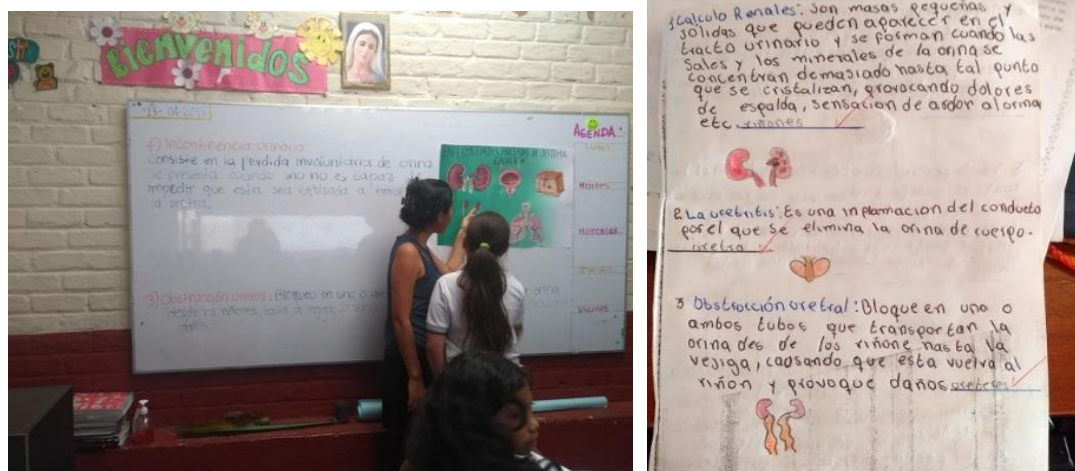 Bienvenidos
AGENDA
Lunes
Martes
Miercoles
Viernes
1) Incontinencia urinaria
consiste en la perdida involuntaria de orina
se presenta cuando no es capaz de
impedir que esta sea
la uretra.
3) Obstrucción uretral: Bloqueo en uno o
desde los riñones hasta la vejiga
daños.
SISTEMA
1 Calculo Renales: Son masas pequeñas y
solidas que pueden aparecer en el
tracto urinario y se forman cuando las
Sales y los minerales de la orina se
concentran demasiado hasta tal punto
que se cristalizan, provocando dolores
de espalda, sensacion de ardor al orinar
etc. riñones
2. La uretritis: Es una inflamacion del conducto
por el que se elimina la orina de cuerpo.
uretra
3 Obstrucción uretral: Bloque en uno o
ambos tubos que transportan la
orina des de los riñone hasta la
vejiga, causando que esta vuelva al
riñon y provoque daños ureteres